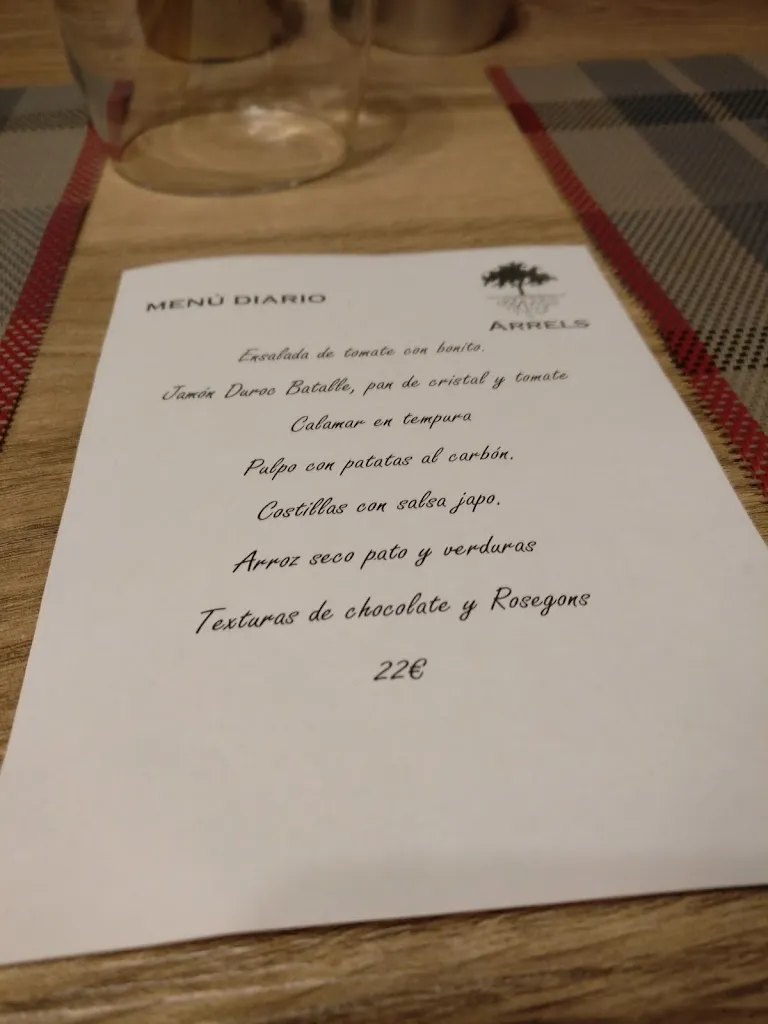 MENÚ DIARIO
ARRELS
Ensalada de tomate con bonito.
Jamón Duroc Batalle, pan de cristal y tomate
Calamar en tempura
Pulpo con patatas al carbón.
Costillas con salsa japo.
Arroz seco pato y verduras
Texturas de chocolate y Rosegons
22€